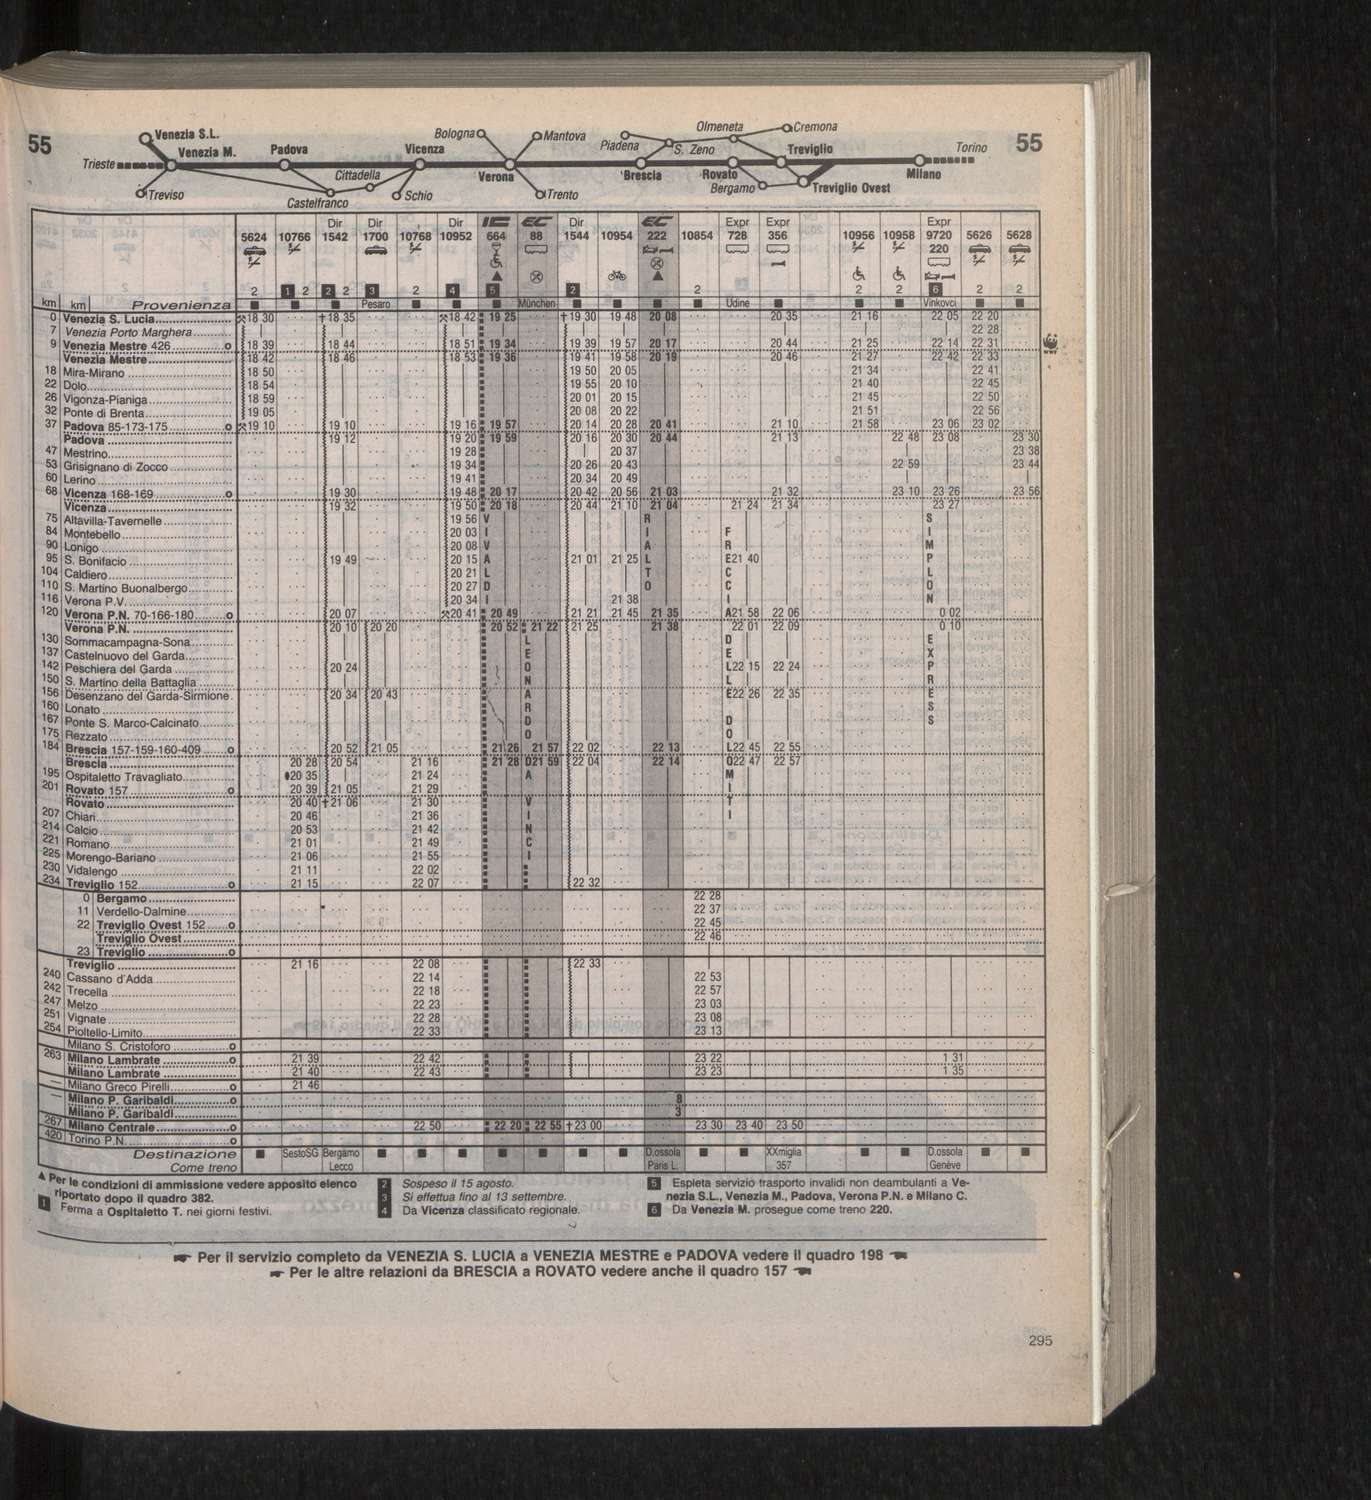 55
Venezia S.L.
Trieste
Venezia M.
Treviso
Padova
Castelfranco
Cittadella
Vicenza
Schio
Bologna
Mantova
Verona
Trento
Piadena
S. Zeno
Brescia
Olmeneta
Cremona
Rovato
Bergamo
Treviglio
Treviglio Ovest
Milano
Torino
55
Dir Dir Dir IC EC Dir EC Expr Expr Expr
5624 10766 1542 1700 10768 10952 664 88 1544 10954 222 10854 728 356 10956 10958 9720 5626 5628
220
2 1 2 2 2 3 2 4 5 2 2 2 2 6 2 2
km km Provenienza Pesaro München Udine Vinkovci
0 Venezia S. Lucia 18 30 †18 35 18 42 19 25 †19 30 19 48 20 08 20 35 21 16 22 05 22 20
7 Venezia Porto Marghera 22 28
9 Venezia Mestre 426 o 18 39 18 44 18 51 19 34 19 39 19 57 20 17 20 44 21 25 22 14 22 31
Venezia Mestre 18 42 18 46 18 53 19 36 19 41 19 58 20 19 20 46 21 27 22 42 22 33
18 Mira-Mirano 18 50 19 50 20 05 21 34 22 41
22 Dolo 18 54 19 55 20 10 21 40 22 45
26 Vigonza-Pianiga 18 59 20 01 20 15 21 45 22 50
32 Ponte di Brenta 19 05 20 08 20 22 21 51 22 56
37 Padova 85-173-175 o 19 10 19 10 19 16 19 57 20 14 20 28 20 41 21 10 21 58 23 06 23 02
Padova 19 12 19 20 19 59 20 16 20 30 20 44 21 13 22 48 23 08 23 30
47 Mestrino 19 28 20 37 23 38
53 Grisignano di Zocco 19 34 20 26 20 43 22 59 23 44
60 Lerino 19 41 20 34 20 49
68 Vicenza 168-169 o 19 30 19 48 20 17 20 42 20 56 21 03 21 32 23 10 23 26 23 56
Vicenza 19 32 19 50 20 18 20 44 21 10 21 04 21 24 21 34 23 27
75 Altavilla-Tavernelle 19 56 V R S
84 Montebello 20 03 I I F I
90 Lonigo 20 08 V A R M
95 S. Bonifacio 19 49 20 15 A 21 01 21 25 L E21 40 P
104 Caldiero 20 21 L T C L
110 S. Martino Buonalbergo 20 27 D O C O
116 Verona P.V. 20 34 I 21 38 I N
120 Verona P.N. 70-166-180 o 20 07 20 41 20 49 21 21 21 45 21 35 A21 58 22 06 0 02
Verona P.N. 20 10 20 20 20 52 21 22 21 25 21 38 22 01 22 09 0 10
130 Sommacampagna-Sona L D E
137 Castelnuovo del Garda E E X
142 Peschiera del Garda 20 24 O L22 15 22 24 P
150 S. Martino della Battaglia N L R
156 Desenzano del Garda-Sirmione 20 34 20 43 A E22 26 22 35 E
160 Lonato R S
167 Ponte S. Marco-Calcinato D D S
175 Rezzato O O
184 Brescia 157-159-160-409 o 20 52 21 05 21 26 21 57 22 02 22 13 L22 45 22 55
Brescia 20 28 20 54 21 16 21 28 D21 59 22 04 22 14 O22 47 22 57
195 Ospitaletto Travagliato 20 35 21 24 A M
201 Rovato 157 o 20 39 21 05 21 29 I
Rovato 20 40 †21 06 21 30 V T
207 Chiari 20 46 21 36 I I
214 Calcio 20 53 21 42 N
221 Romano 21 01 21 49 C
225 Morengo-Bariano 21 06 21 55 I
230 Vidalengo 21 11 22 02
234 Treviglio 152 o 21 15 22 07 22 32
0 Bergamo 22 28
11 Verdello-Dalmine 22 37
22 Treviglio Ovest 152 o 22 45
Treviglio Ovest 22 46
23 Treviglio o
Treviglio 21 16 22 08 22 33
240 Cassano d'Adda 22 14 22 53
242 Trecella 22 18 22 57
247 Melzo 22 23 23 03
251 Vignate 22 28 23 08
254 Pioltello-Limito 22 33 23 13
Milano S. Cristoforo o
263 Milano Lambrate o 21 39 22 42 23 22 1 31
Milano Lambrate 21 40 22 43 23 23 1 35
— Milano Greco Pirelli o 21 46
— Milano P. Garibaldi o 8
Milano P. Garibaldi 3
267 Milano Centrale o 22 50 22 20 22 55 †23 00 23 30 23 40 23 50
420 Torino P.N. o
Destinazione SestoSG Bergamo D.ossola XXmiglia D.ossola
Come treno Lecco Paris L. 357 Genève
WWF
▲ Per le condizioni di ammissione vedere apposito elenco
riportato dopo il quadro 382.
1 Ferma a Ospitaletto T. nei giorni festivi.
2 Sospeso il 15 agosto.
3 Si effettua fino al 13 settembre.
4 Da Vicenza classificato regionale.
5 Espleta servizio trasporto invalidi non deambulanti a Ve-
nezia S.L., Venezia M., Padova, Verona P.N. e Milano C.
6 Da Venezia M. prosegue come treno 220.
Per il servizio completo da VENEZIA S. LUCIA a VENEZIA MESTRE e PADOVA vedere il quadro 198
Per le altre relazioni da BRESCIA a ROVATO vedere anche il quadro 157
295